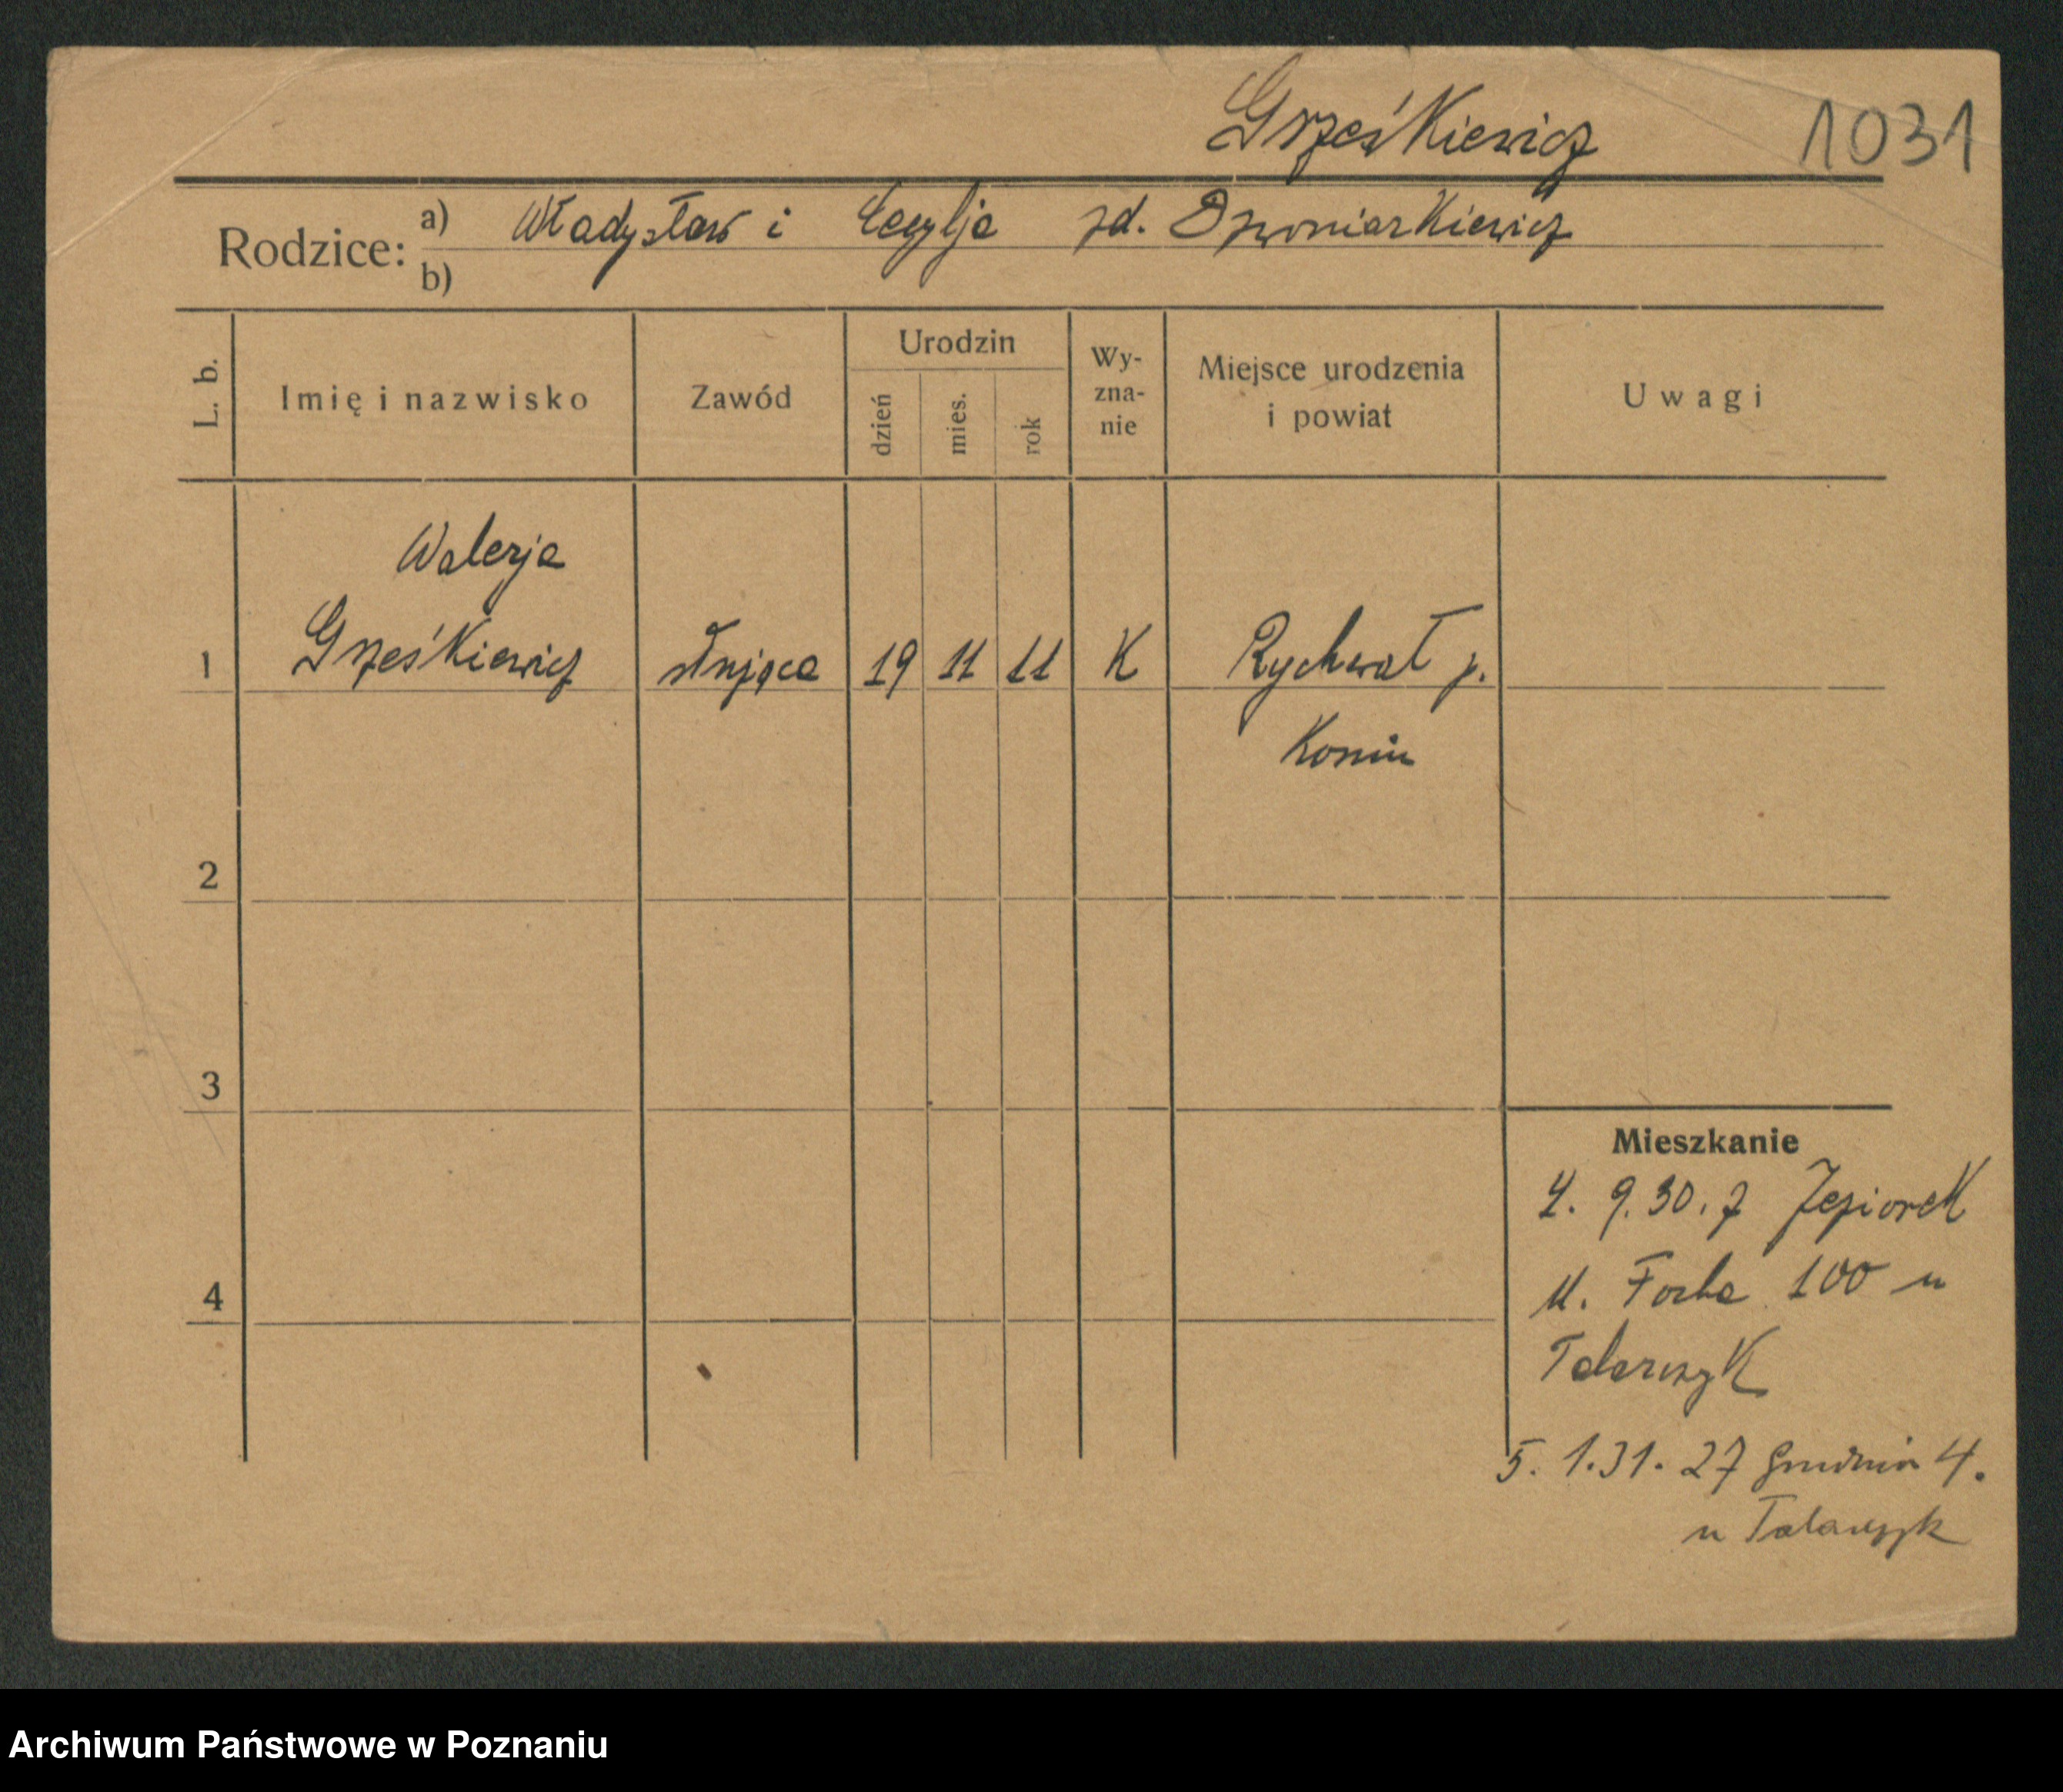 Grześkiewicz 1031
Rodzice: a) Władysław i Cecylja zd. Dzwoniarkiewicz
b)
L. b. Imię i nazwisko Zawód Urodzin dzień mies. rok Wy-zna-nie Miejsce urodzenia i powiat Uwagi
Walerja
1 Grześkiewicz służąca 19 11 11 K Rychwał p.
Konin
2
3
Mieszkanie
4. 9. 30. z Jeziorek
M. Focha 100 u
4
Talarczyk
5. 1. 31. 27 Grudnia 4.
u Talarczyk
Archiwum Państwowe w Poznaniu